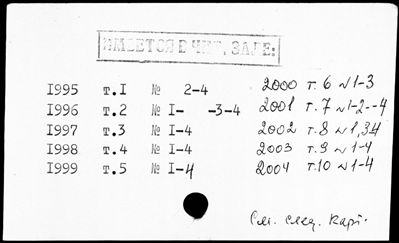 ИМЕЕТСЯ В ЧИТ. ЗАЛЕ:
1995 т.1 № 2-4 2000 т. 6 № 1-3
1996 т.2 № 1- -3-4 2001 т. 7 № 1-2--4
1997 т.3 № 1-4 2002 т. 8 № 1,34
1998 т.4 № 1-4 2003 т. 9 № 1-4
1999 т.5 № 1-4 2004 т.10 № 1-4
См. след. карт.